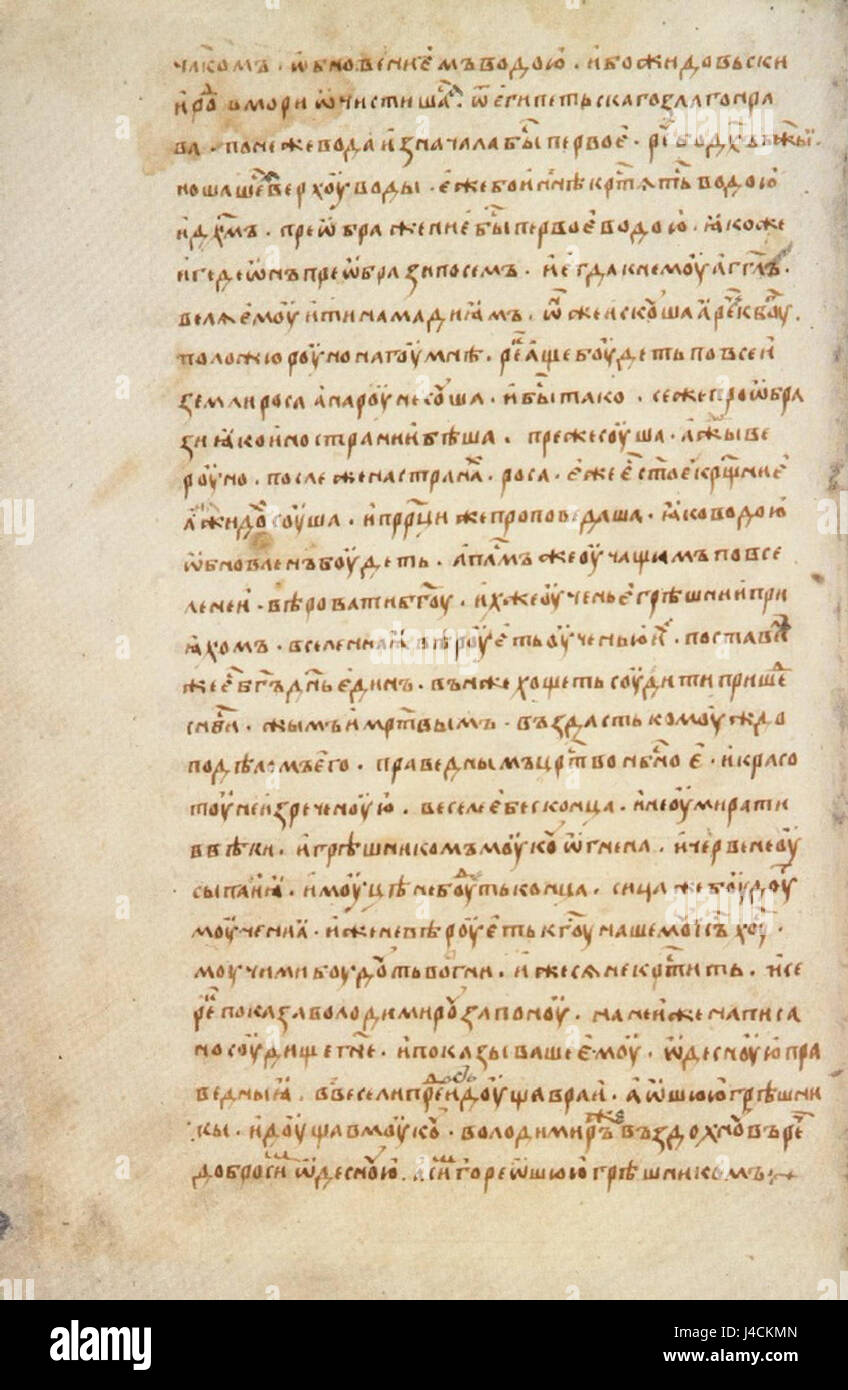 чл҃комъ · ѡбновениемъ водою · ибо жидовьски
и ро҃д в мори ѡчистиша · ѿ египетьскаго злаго нра
ва · понеже вода изначала бы҃ первое · ре҃ бо дх҃ъ бж҃ьи
ношашеⷭ верхоу воды · еже бо и нн҃ѣ крⷭтѧть водою
и дх҃мъ · преѡбражение бы҃ первое водою · ꙗкоже
и гедеѡнъ преѡбрази посемъ · и егда к немоу анг҃лъ ·
велѧ емоу ити на мадиꙗмъ · ѡн же искоуша ре҃к бг҃оу ·
положю роуно на гоумнѣ · реⷱ аще боудеть по всеи
земли роса а на роунѣ соуша · и бы҃ тако · се же проѡбра
зи ꙗко инострании бѣша · преже соуша · а жыве
роуно · послеже на странаⷯ · роса · еже есть с҃тое крⷭщние
а жидоⷨ соуша · и прⷪрци же проповедаша · ꙗко водою
ѡбновленъ боудеть · апⷭлмъ же оучащимъ по все
ленеи · вѣровати бг҃оу · ихже оученье грѣшнии при
ꙗхомъ · вселеннаꙗ вѣроуеть оученью иⷯ · поставиⷧ
же еⷭ бг҃ъ дн҃ь единъ · в ньже хощеть соудити пришеⷣ
с нб҃си · жывымъ и мрⷮвымъ · въздасть комоуждо
по дѣломъ его · праведнымъ црⷭтво нбⷭное · и красо
тоу неизреченоую · веселе бес конца · и не оумирати
в вѣки · и грѣшникомъ моука ѡгнена · и черве неоу
сыпаꙗи · и моуцѣ не боудⷮь конца · сица же боудоуⷮ
моучениꙗ · иже не вѣроуеть к г҃оу нашемоу іс҃ъ хо҃у ·
моучими боудоуть в огни · иже сѧ не крⷭтить · и се
реⷱ показа володимироу запоноу · на неиже написа
но соудище гн҃е · и показываше емоу · ѡдесноую пра
ведныꙗ · в веселии преидоуща в раи · а ѡшюю грѣшни
кы · идоуща в моукоу · володимиръ же въздохноувъ реⷱ
добро сиⷨ ѡдесноую · а сиⷨ горе ѡшюю грѣшникомъ :~
alamy
Image ID: J4CKMN
www.alamy.com